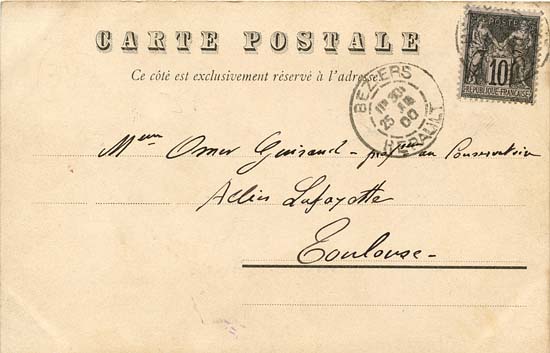 CARTE POSTALE
Ce côté est exclusivement réservé à l'adresse.
POSTE
10
REPUBLIQUE FRANÇAISE
BEZIERS
25
00
HERAULT
Omer Guiraud - au Conservatoire
Allées Lafayette
Toulouse